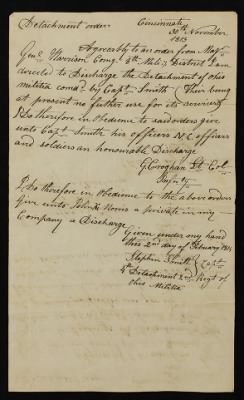 Detachment orders Cincinnati
30th November
1813
Agreeably to an order from Maj.
Genl. Harrison Comg. 8th Mil. District I am
directed to Discharge the Detachment of Ohio
militia comd. by Capt. Smith (Their being
at present no further use for its services
I do therefore in obedience to said orders give
unto Capt. Smith his officers N.C. officers
and soldiers an honourable Discharge
G. Croghan Lt. Col.
Infnty
I, do therefore in Obedience to the above orders
Give unto John a private in my
Company a Discharge
Given under my hand
this 2nd day of February 1814
Stephen Smith Capt.
4th Detachment 2nd Regt of
Ohio Militia